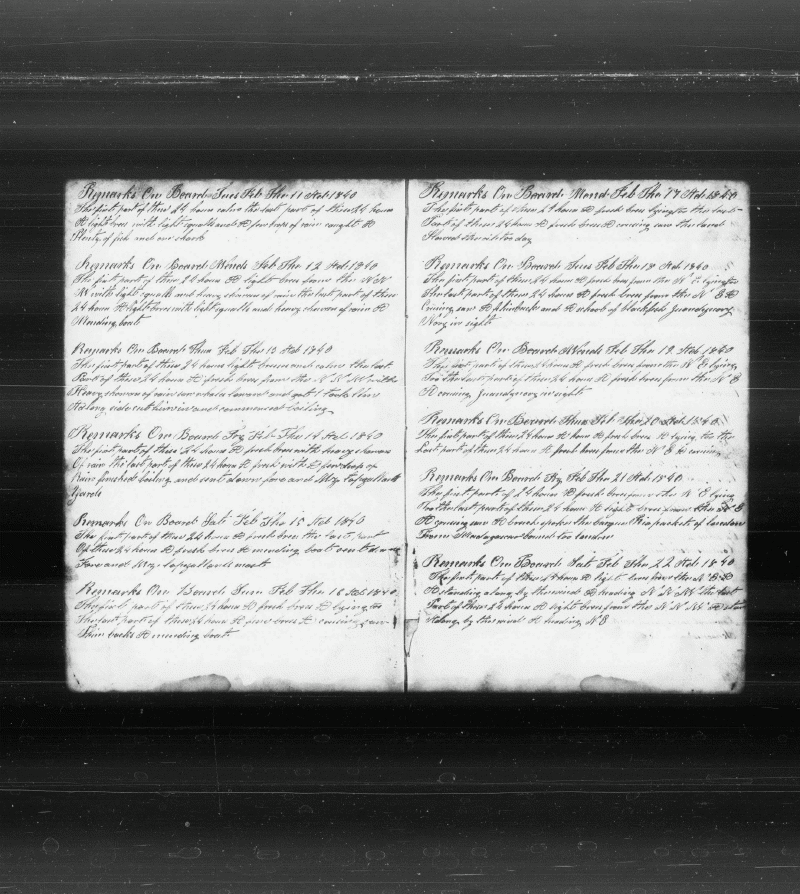 Remarks On Board Tues Feb The 11 Feb 1840
The first part of these 24 hours calm the last part of these 24 hours
A light bres with light squalls and A few drops of rain caught A
Plenty of fish and one shark
Remarks On Board Weneds Feb The 12 Feb 1840
The first part of these 24 hours A light bres from the N N
W with light squalls and heavy showers of rain the last part of these
24 hours A light bres with light squalls and heavy showers of rain A
Mending boat
Remarks On Board Thus Feb The 13 Feb 1840
The first part of these 24 hours light breses and calm the last
Part of these 24 hours A fresh bres from the N N W with
Heavy showers of rain saw whales lowerd and got 1 took him
Along side cut him in and commenced boiling
Remarks On Board Fry Feb The 14 Feb 1840
The first part of these 24 hours A fresh bres with heavy showers
Of rain the last part of these 24 hours A fresh with A few drops of
Rain finished boiling and sent down fore and Miz topgallant
Yards
Remarks On Board Sat Feb The 15 Feb 1840
The first part of these 24 hours A fresh bres the last part
Of these 24 hours A fresh bres A mending boat sent down
Fore and Miz topgalland mast
Remarks On Board Sun Feb The 16 Feb 1840
The first part of these 24 hours A fresh bres A lying too
The last part of these 24 hours A fresh bres A cruising saw
Finn backs A mending boat
Remarks On Board Mond Feb The 17 Feb 1840
The first part of these 24 hours A fresh bres lying too the last
Part of these 24 hours A fresh bres A cruising saw the land
Remarks On Board Tues Feb The 18 Feb 1840
The first part of these 24 hours A fresh bres from the N E lying too
The last part of these 24 hours A fresh bres from the N E A
Cruising saw A finback and A school of blackfish
in sight
Remarks On Board Weneds Feb The 19 Feb 1840
The first part of these 24 hours A fresh bres from the N E lying
Too the last part of these 24 hours A fresh bres from the N E
A cruising in sight
Remarks On Board Thus Feb The 20 Feb 1840
The first part of these 24 hours A fresh bres A lying too the
Last part of these 24 hours A fresh bres from the N E A cruising
Remarks On Board Fry Feb The 21 Feb 1840
The first part of 24 hours A fresh bres from the N E lying
Too the last part of these 24 hours A light bres from the N E
A cruising saw A spoke the packet of london
From Madagascar bound too london
Remarks On Board Sat Feb The 22 Feb 1840
The first part of these 24 hours A light bres from the N E A
Standing along by the wind A heading N N W the last
Part of these 24 hours A light bres from the N N W A
Along by the wind A heading N E